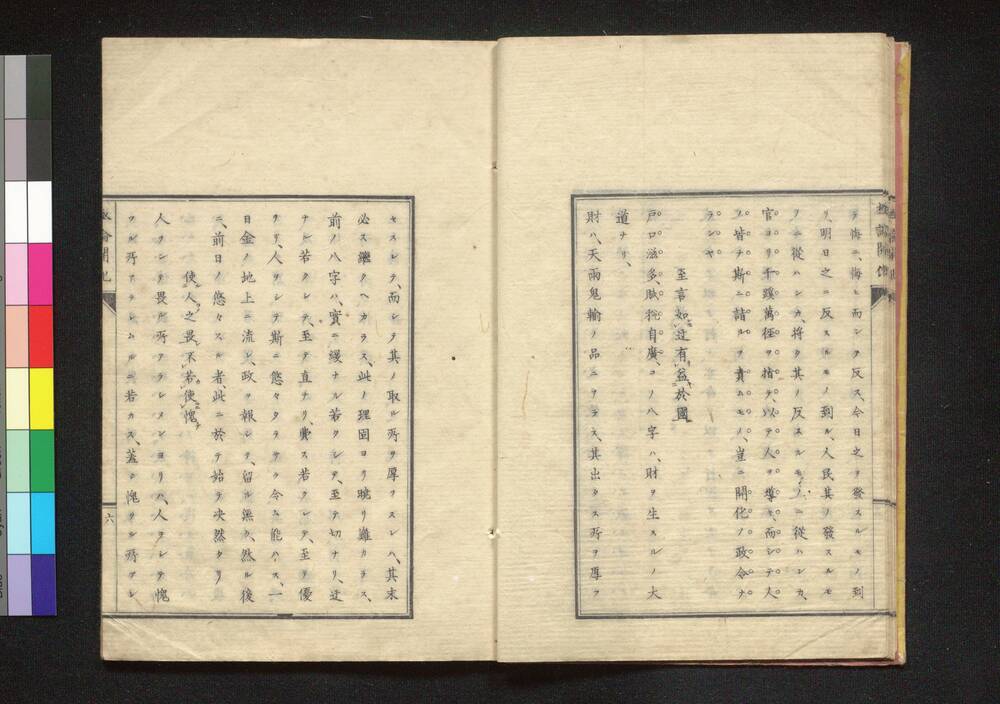 テ悔ニ、悔ヒ、而シテ反ス、今日之ヲ發スルモノ到
リ、明日之ニ反スルモノ到ル、人民其ノ發スルモ
ノニ從ハンカ、將タ其ノ反スルモノニ從ハンカ、
官ヨリ千蹊萬徑ヲ指テ、以テ人ヲ導キ、而シテ人
ノ皆ナ斯ニ詣ルヲ責ムモノ、豈ニ開化ノ政令ナ
ランヤ
至言如這有益於國
戸口滋多、賦税自廣、コノ八字ハ、財ヲ生スルノ大
道ナリ、
財ハ、天雨鬼輸ノ品ニアラス、其出タス所ヲ厚フ
セスシテ、而シテ其ノ取ル所ヲ厚フスレハ、其末
必ス繼クヘカラス、此ノ理固ヨリ曉リ難カラス、
前ノ八字ハ、實ニ緩ナル若クシテ、至テ切ナリ、迂
ナル若クシテ、至テ直ナリ、費ス若クシテ、至テ優
ナリ、人ヲシテ斯ニ悠々タラサラ令ム能ハス、一
日金ノ地上ニ流レ、政ヲ報シテ、留ル無ク、然ル後
ニ、前日ノ悠々スル者、此ニ於テ始テ決然タリ
使人之畏不若使愧
人ヲシテ畏ル所アラシメンヨリハ、人ヲシテ愧
ツル所アラシムルニ若カス、蓋シ愧ツル所ヲシ
六